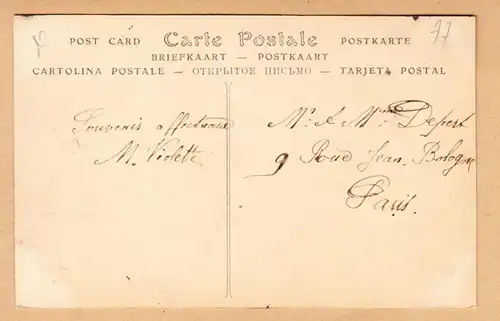 77
POST CARD Carte Postale POSTKARTE
BRIEFKAART — POSTKAART
CARTOLINA POSTALE — ОТКРЫТОЕ ПИСЬМО — TARJETA POSTAL
Souvenir affectueux
M. Violette
Mr & Mme Depert
9 Rue Jean Bologne
Paris.